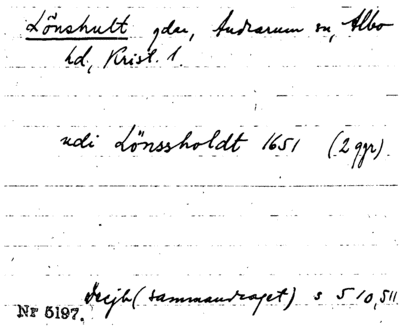 Lönshult gdar, Andrarum sn, Albo
hd, Krist. l.
udi Lönssholdt 1651 (2 ggr)
Decjb (sammandraget) s 510, 511
Nr 5197.